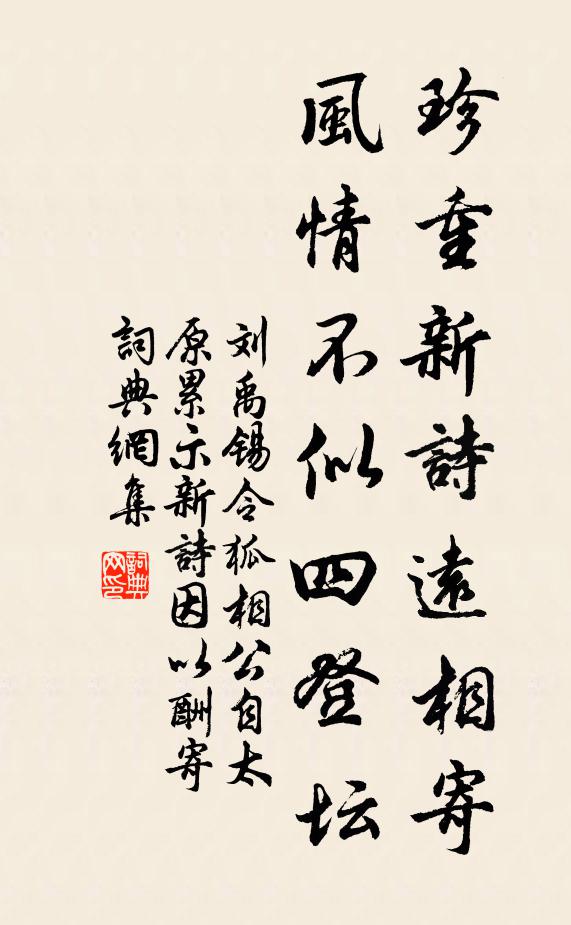 珍重新詩遠相寄
風情不似四登坛
刘禹锡令狐相公自太
原累示新詩因以酬寄
詞典網集
詞典
网印